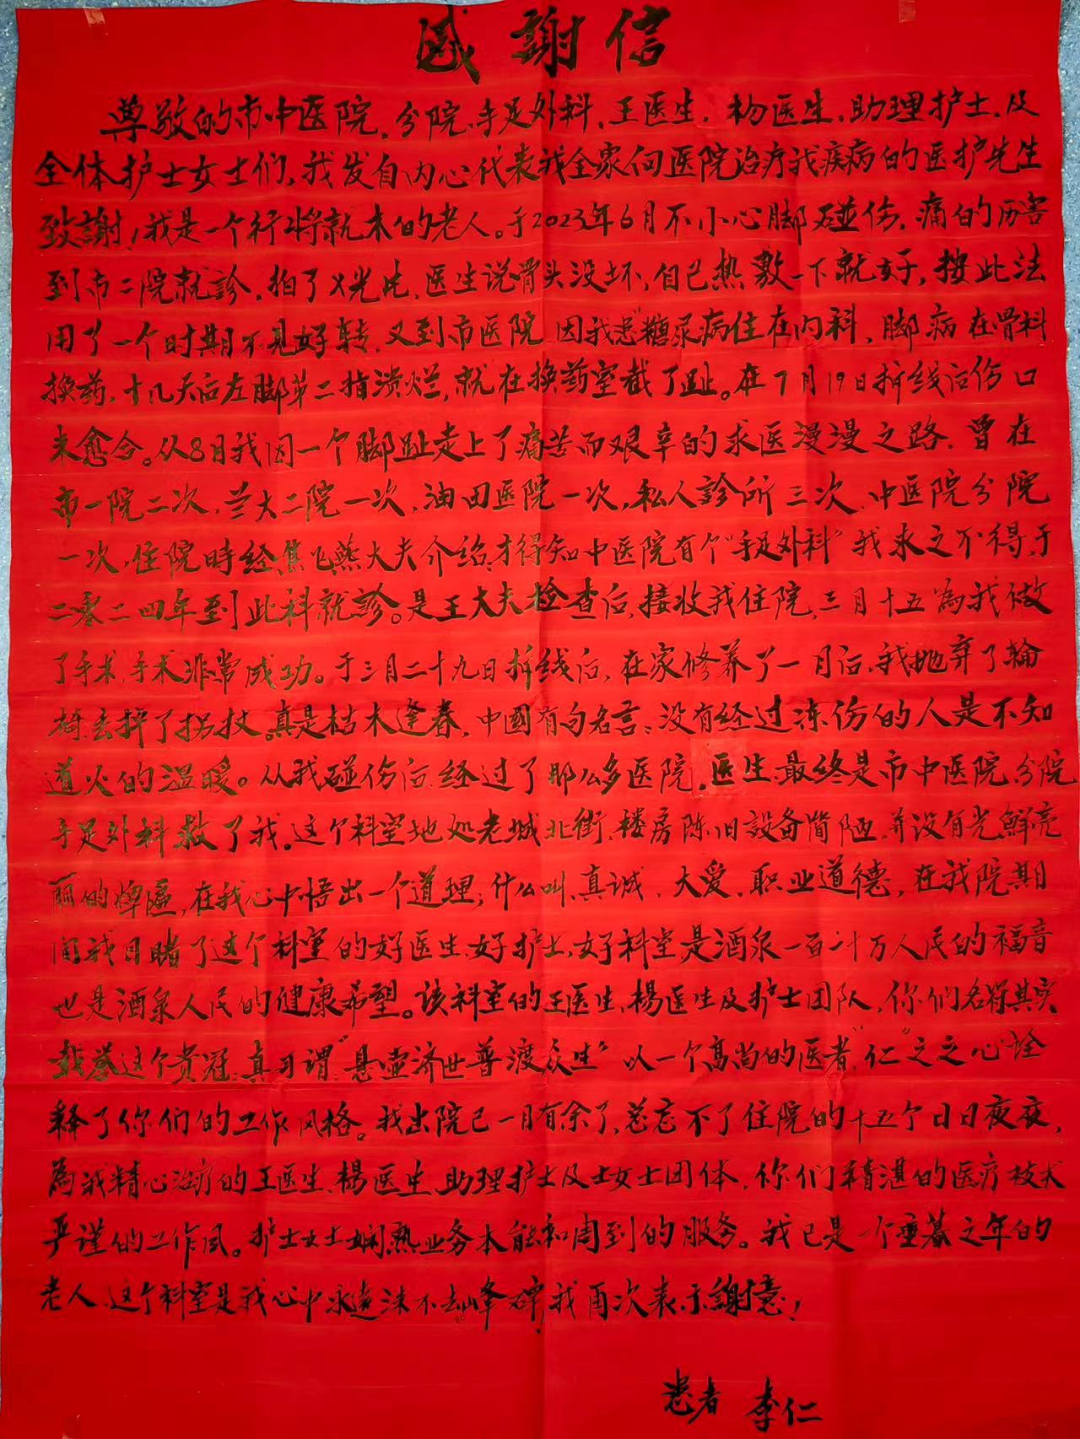 感謝信
尊敬的市中医院,分院,手足外科,王医生,杨医生,助理护士,及
全体护士女士们,我发自内心代表我全家向医院治疗我疾病的医护先生
致謝!我是一个行将就木的老人。于2023年6月不小心脚碰伤,痛的厉害
到市二院就診,拍了X光片,医生说骨头没坏,自己热敷一下就好,按此法
用了一个时期不见好转,又到市医院因我患"糖尿病住在内科,脚病在骨科
换药,十几天后左脚第二指溃烂,就在换药室截了趾。在7月19日拆线后伤口
未愈合。从8月我因一个脚趾走上了痛苦而艰辛的求医漫漫之路,曾在
市一院二次,兰大二院一次,油田医院一次,私人診所三次,中医院分院
一次,住院時经焦飞燕大夫介绍才得知中医院有个"手足外科"我求之不得,于
二零二四年到此科就診。是王大夫检查后,接收我住院,三月十五為我做
了手术,手术非常成功。于三月二十九日拆线后,在家修养了一月后,我抛弃了輪
椅去掉了拐杖。真是枯木逢春,中國有句名言:没有经过冻伤的人是不知
道火的温暖。从我碰伤后经过了那么多医院,医生最终是市中医院分院
手足外科救了我。这个科室地处老城北街,楼房陈旧設备简陋,并没有光鮮亮
丽的牌匾,在我心中悟出一个道理;什么叫真诚、大爱、职业道德,在我院期
间我目睹了这个科室的好医生,好护士,好科室是酒泉一百二十万人民的福音
也是酒泉人民的健康希望。该科室的王医生,楊医生及护士团队,你们名符其实
戴着这个贵冠,真可谓"悬壶济世普渡众生"以一个高尚的医者"仁"之心诠
释了你们的工作风格。我出院已一月有余了,总忘不了住院的十五个日日夜夜,
為我精心治疗的王医生,楊医生,助理护士及士女士团体,你们精湛的医疗技术
严谨的工作风。护士女士嫻熟业务本能和周到的服务。我已是一个垂暮之年的
老人,这个科室是我心中永遠沫不去峰碑,我再次表示謝意!
患者 李仁